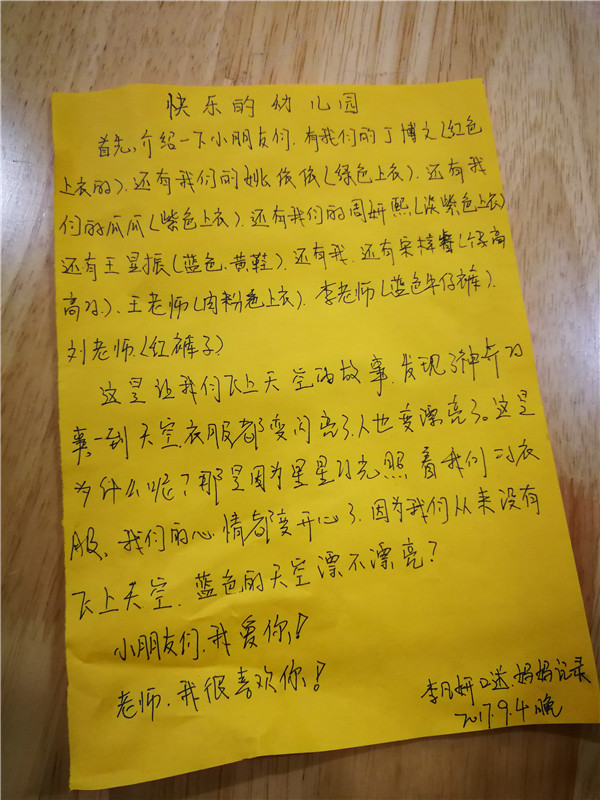 快乐的幼儿园
首先,介绍一下小朋友们,有我们的丁博文(红色
上衣的).还有我们的姚依依(绿色上衣).还有我
们的瓜瓜(紫色上衣).还有我们的周妍熙(淡紫色上衣)
还有王显振(蓝色.黄鞋).还有我.还有宋梓(个子高
高的).王老师(肉粉色上衣).李老师(蓝色牛仔裤).
刘老师.(红裤子)
这是让我们飞上天空的故事.发现了神奇的
事.一到天空,衣服都变闪亮了.人也变漂亮了。这是
为什么呢?那是因为星星的光照着我们的衣
服、我们的心情都变开心了.因为我们从来没有
飞上天空.蓝色的天空漂不漂亮?
小朋友们,我爱你!
老师,我很喜欢你!
李月妍口述.妈妈记录
2017.9.4晚